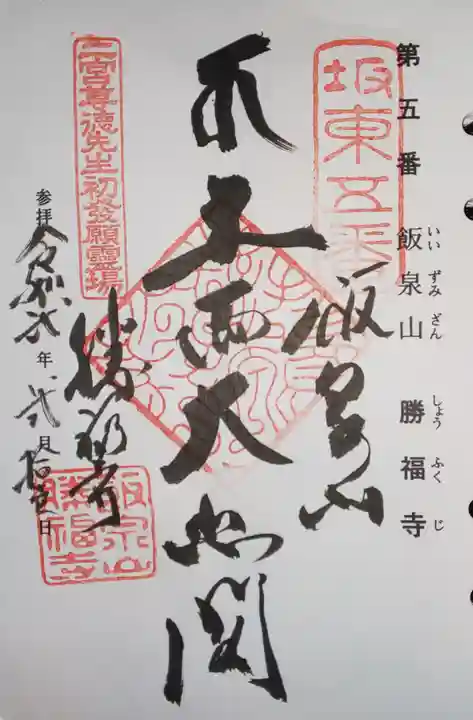 第五番 飯泉山 勝福寺
いい ずみ ざん しょう ふく じ
坂東五番
飯泉山
十一面大悲閣
二宮尊徳先生初發願靈場
勝福寺
飯泉山
勝福寺
参拝 令和弐年弐月 日